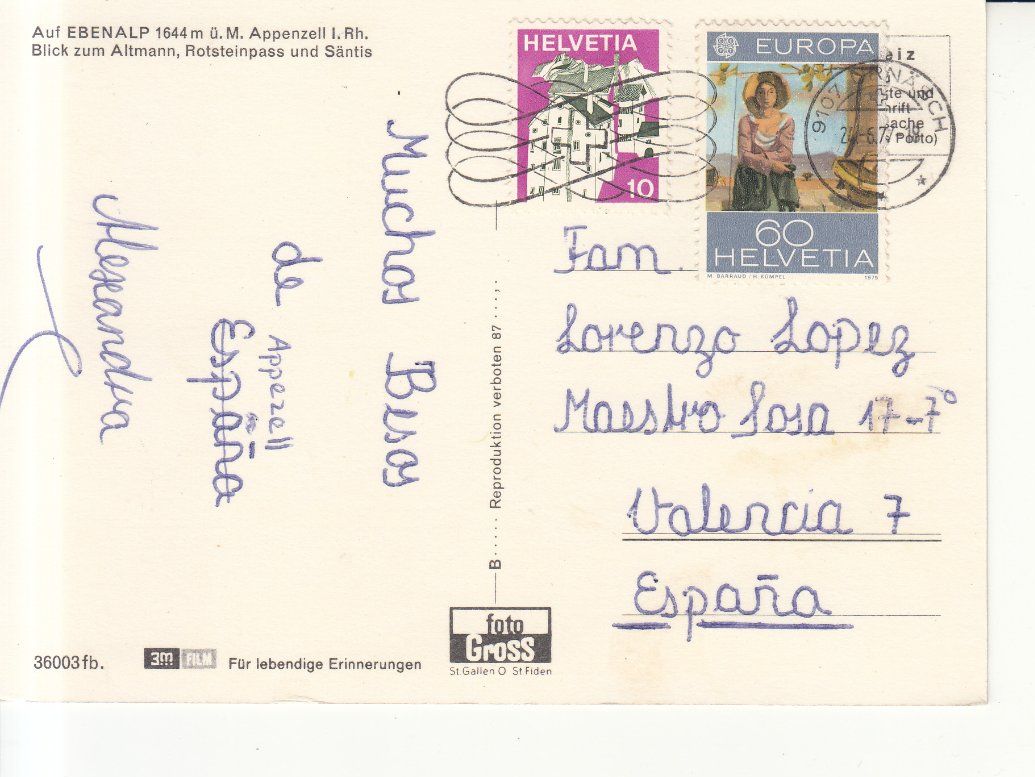 Auf EBENALP 1644 m ü. M. Appenzell I. Rh.
Blick zum Altmann, Rotsteinpass und Säntis
Muchos Besos
de Appezell
España
Alexandra
HELVETIA
10
EUROPA
60
HELVETIA
M. BARRAUD / H. KÜMPEL 1975
9107 URNÄSCH
eiz
te und
hrift
ache
Porto)
Fam.
Lorenzo Lopez
Maestro Sosa 17-7º
Valencia 7
España
B····· Reproduktion verboten 87 ···,·
36003 fb.
3M FILM Für lebendige Erinnerungen
foto
Gross
St. Gallen O St Fiden